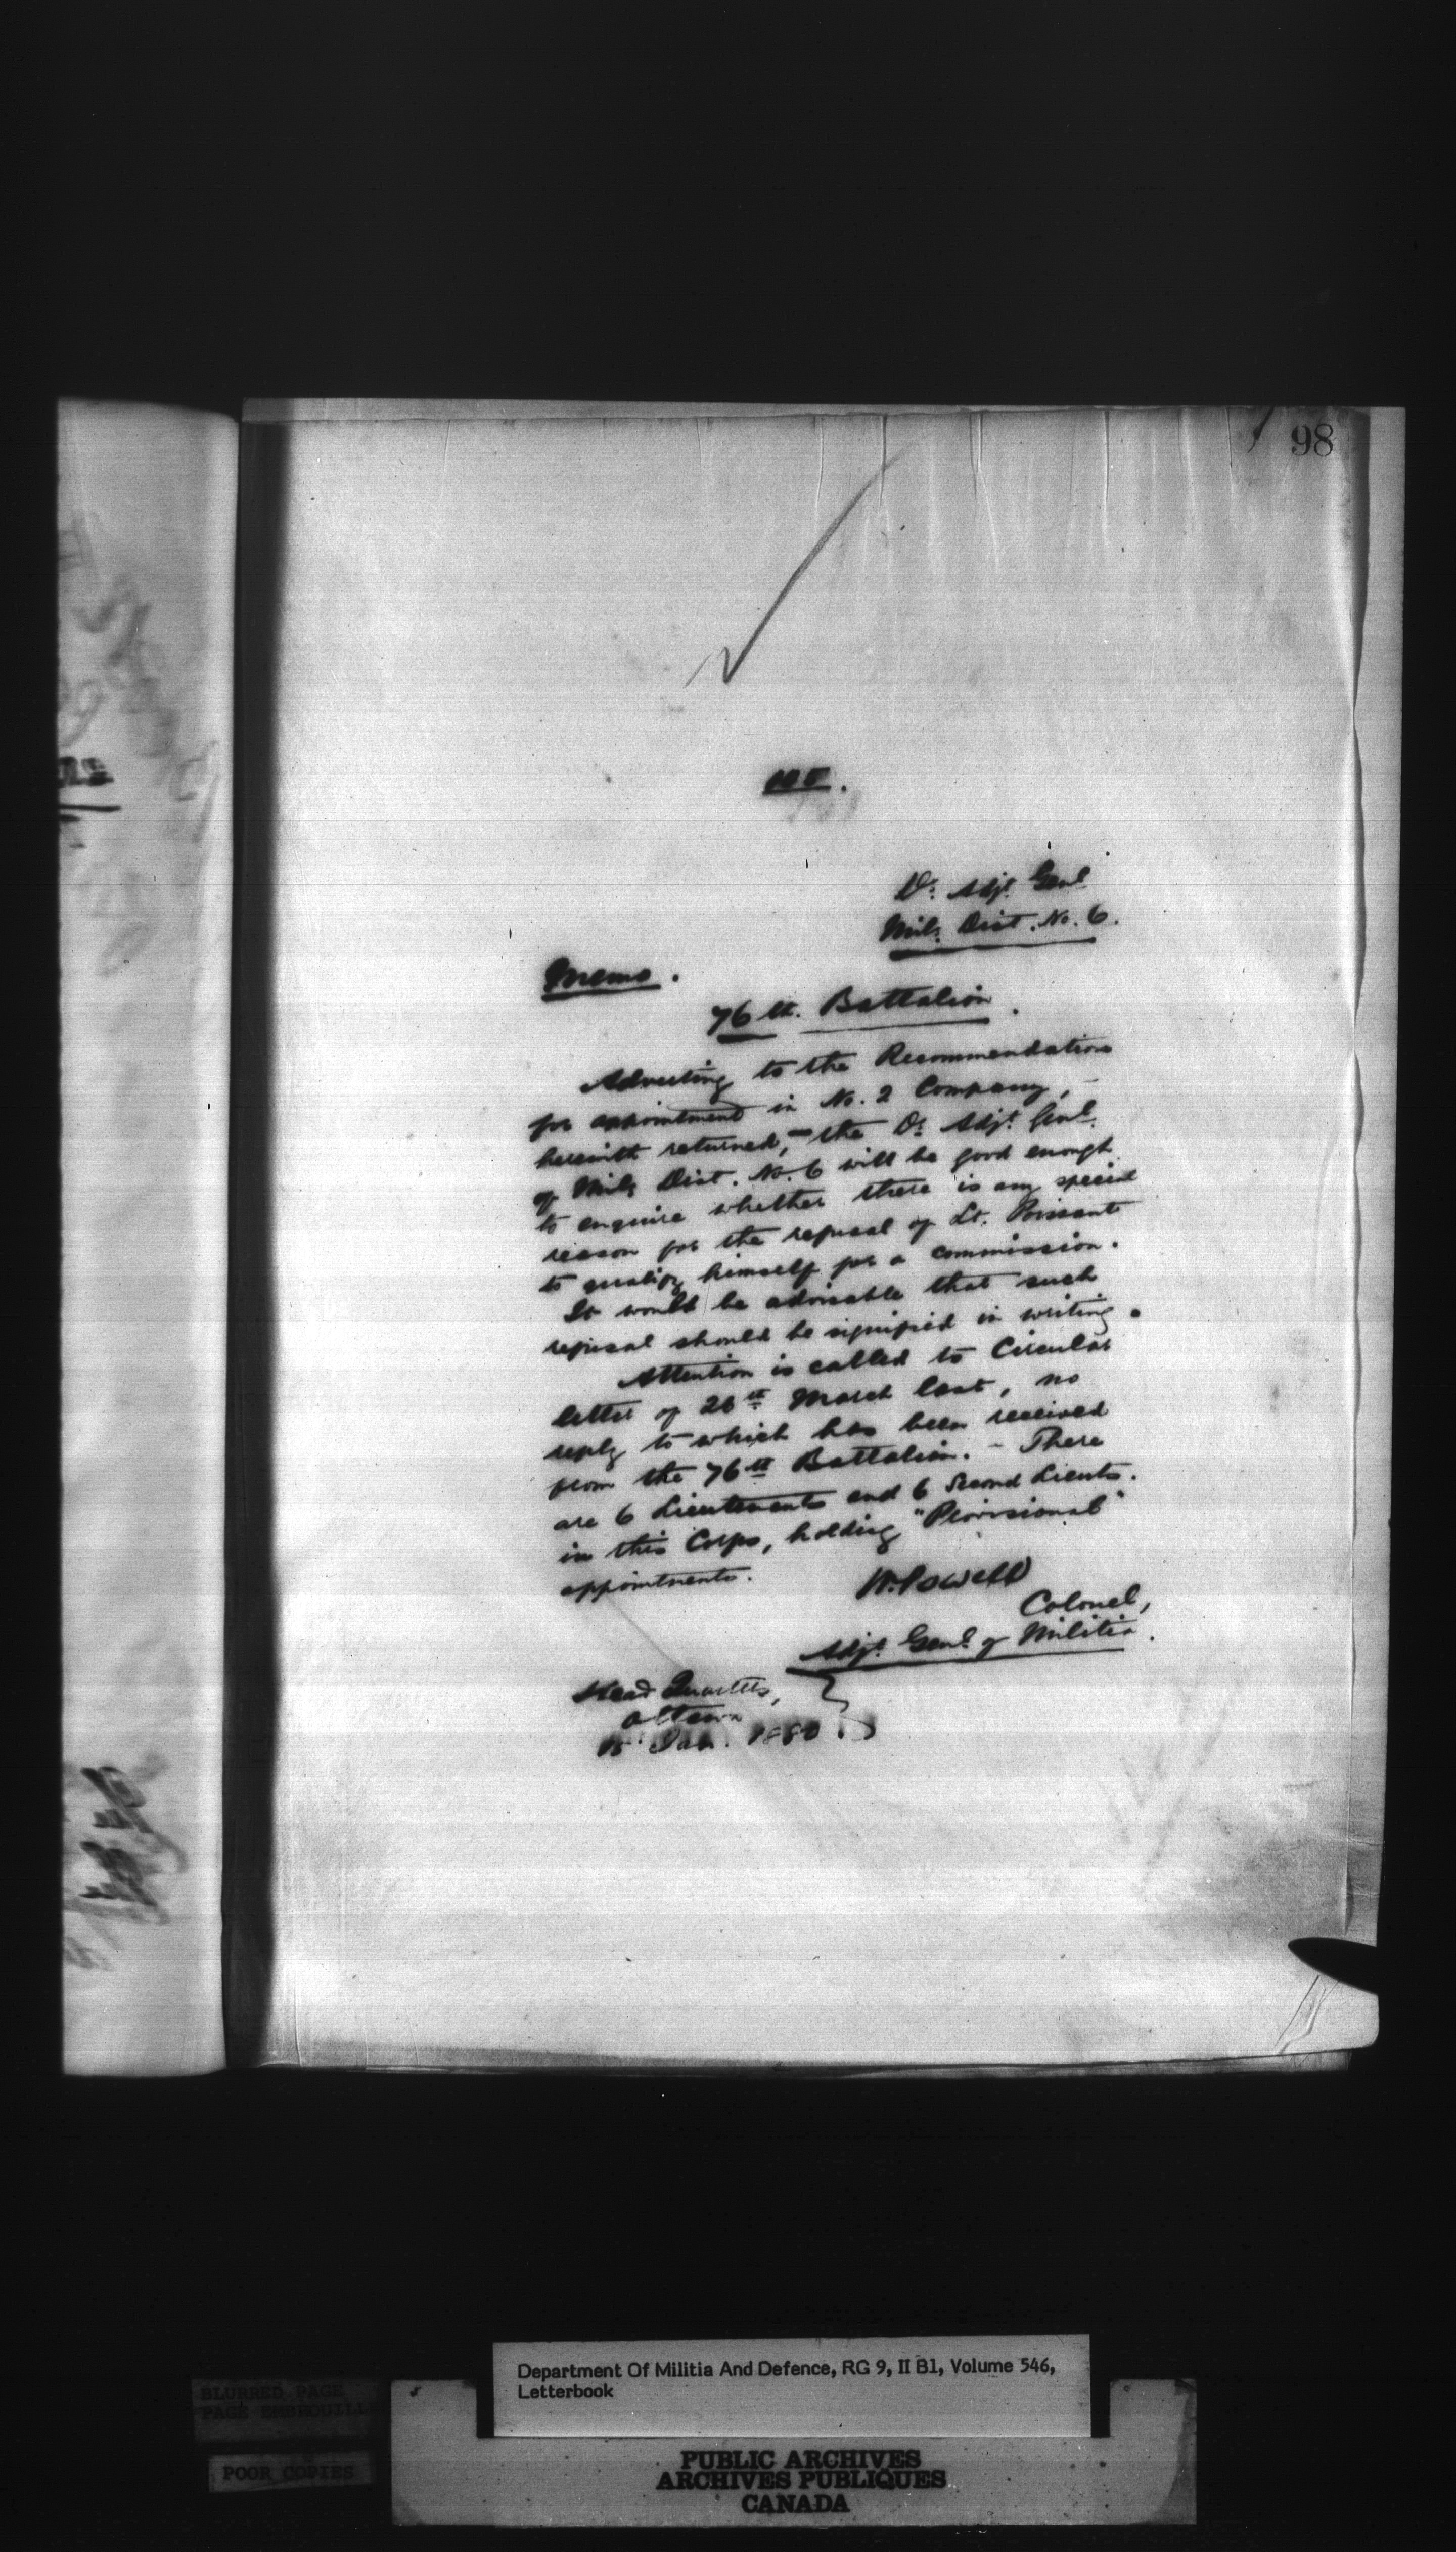 98
D. Adjt. Genl.
Mily. Dist. No. 6.
Memo.
76th. Battalion.
Adverting to the Recommendation
for appointment in No. 2 Company, -
herewith returned, - the D. Adjt. Genl.
of Mily Dist. No. 6 will be good enough
to enquire whether there is any special
reason for the refusal of Lt. Poissant
to qualify himself for a commission.
It would be advisable that such
refusal should be signified in writing.
Attention is called to Circular
letter of March last, no
reply to which has been received
from the 76th Battalion. - There
are 6 Lieutenants and 6 Second Lieuts.
in this Corps, holding "Provisional"
appointments.
W. Powell
Colonel,
Adjt. Genl. of Militia.
Head Quarters,
Ottawa
Jan. 1880
BLURRED PAGE
PAGE EMBROUILLÉ
POOR COPIES
Department Of Militia And Defence, RG 9, II B1, Volume 546,
Letterbook
PUBLIC ARCHIVES
ARCHIVES PUBLIQUES
CANADA